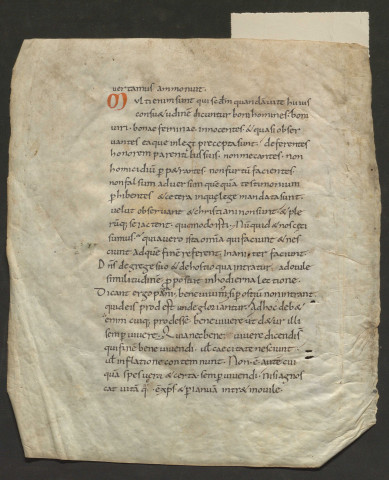 uertamus ammonuit.
Multi enim sunt qui sedm quandā uitę huius
consuetudinē dicuntur boni homines. boni
uiri. bonae feminae. innocentes & quasi obser
uantes ea que in lege precepta sunt. deferentes
honorem parentibus suis. non moecantes. non
homicidiū p&rantes. non furtū facientes
non falsum aduersum quēquā testimonium
phibentes & c&era que lege mandata sunt
uelut obseruant & christiani non sunt & ple
rūq; se iactent. quomodo isti. Nūquid & nos ceci
sumus. quia uero ista omnia qui faciunt & nes
ciunt ad quē finē referent. inaniter faciunt.
Dñs de grege suo & de hostio quo intratur ad ouile
similitudinē pposuit in hodierna lectione.
Dicant ergo pagani. bene uiuim; si p ostiū non intrant
quid eis prodest unde gloriantur. Ad hoc deb&
enim cuiq; prodesse bene uiuere ut d&ur illi
semp uiuere. uiuere dicendi s̄
qui finē bene uiuendi. ul̄ caecitate nesciunt.
ul̄ inflatione contemnunt. Non ē autē cui
quā spes uera & certa semp uiuendi. nisi agnos
cat uitā qđ ē xp̄s & p ianuā intr& in ouile